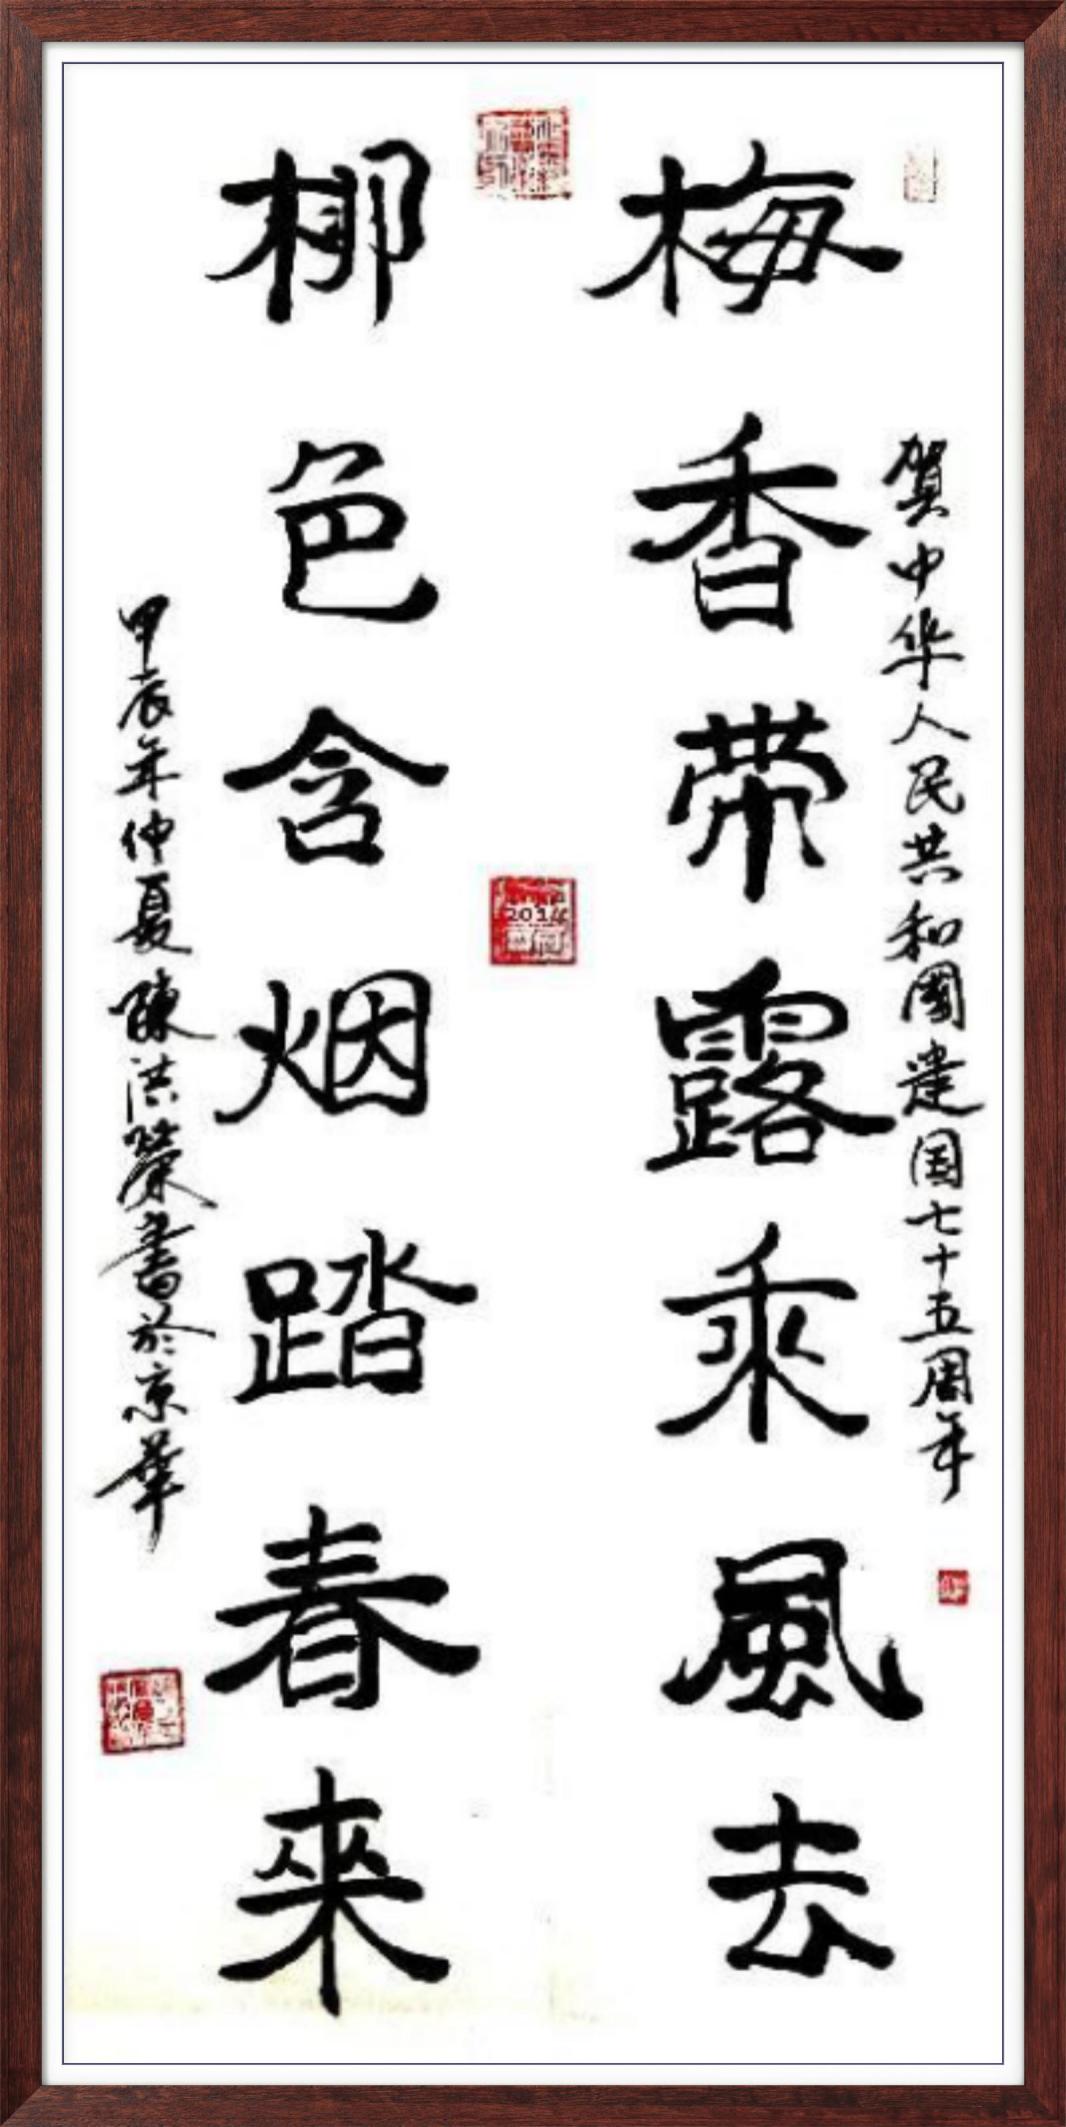 贺中华人民共和國建国七十五周年
梅香带露乘風去
柳色含烟踏春來
甲辰年仲夏陳洪榮書於京華
2024